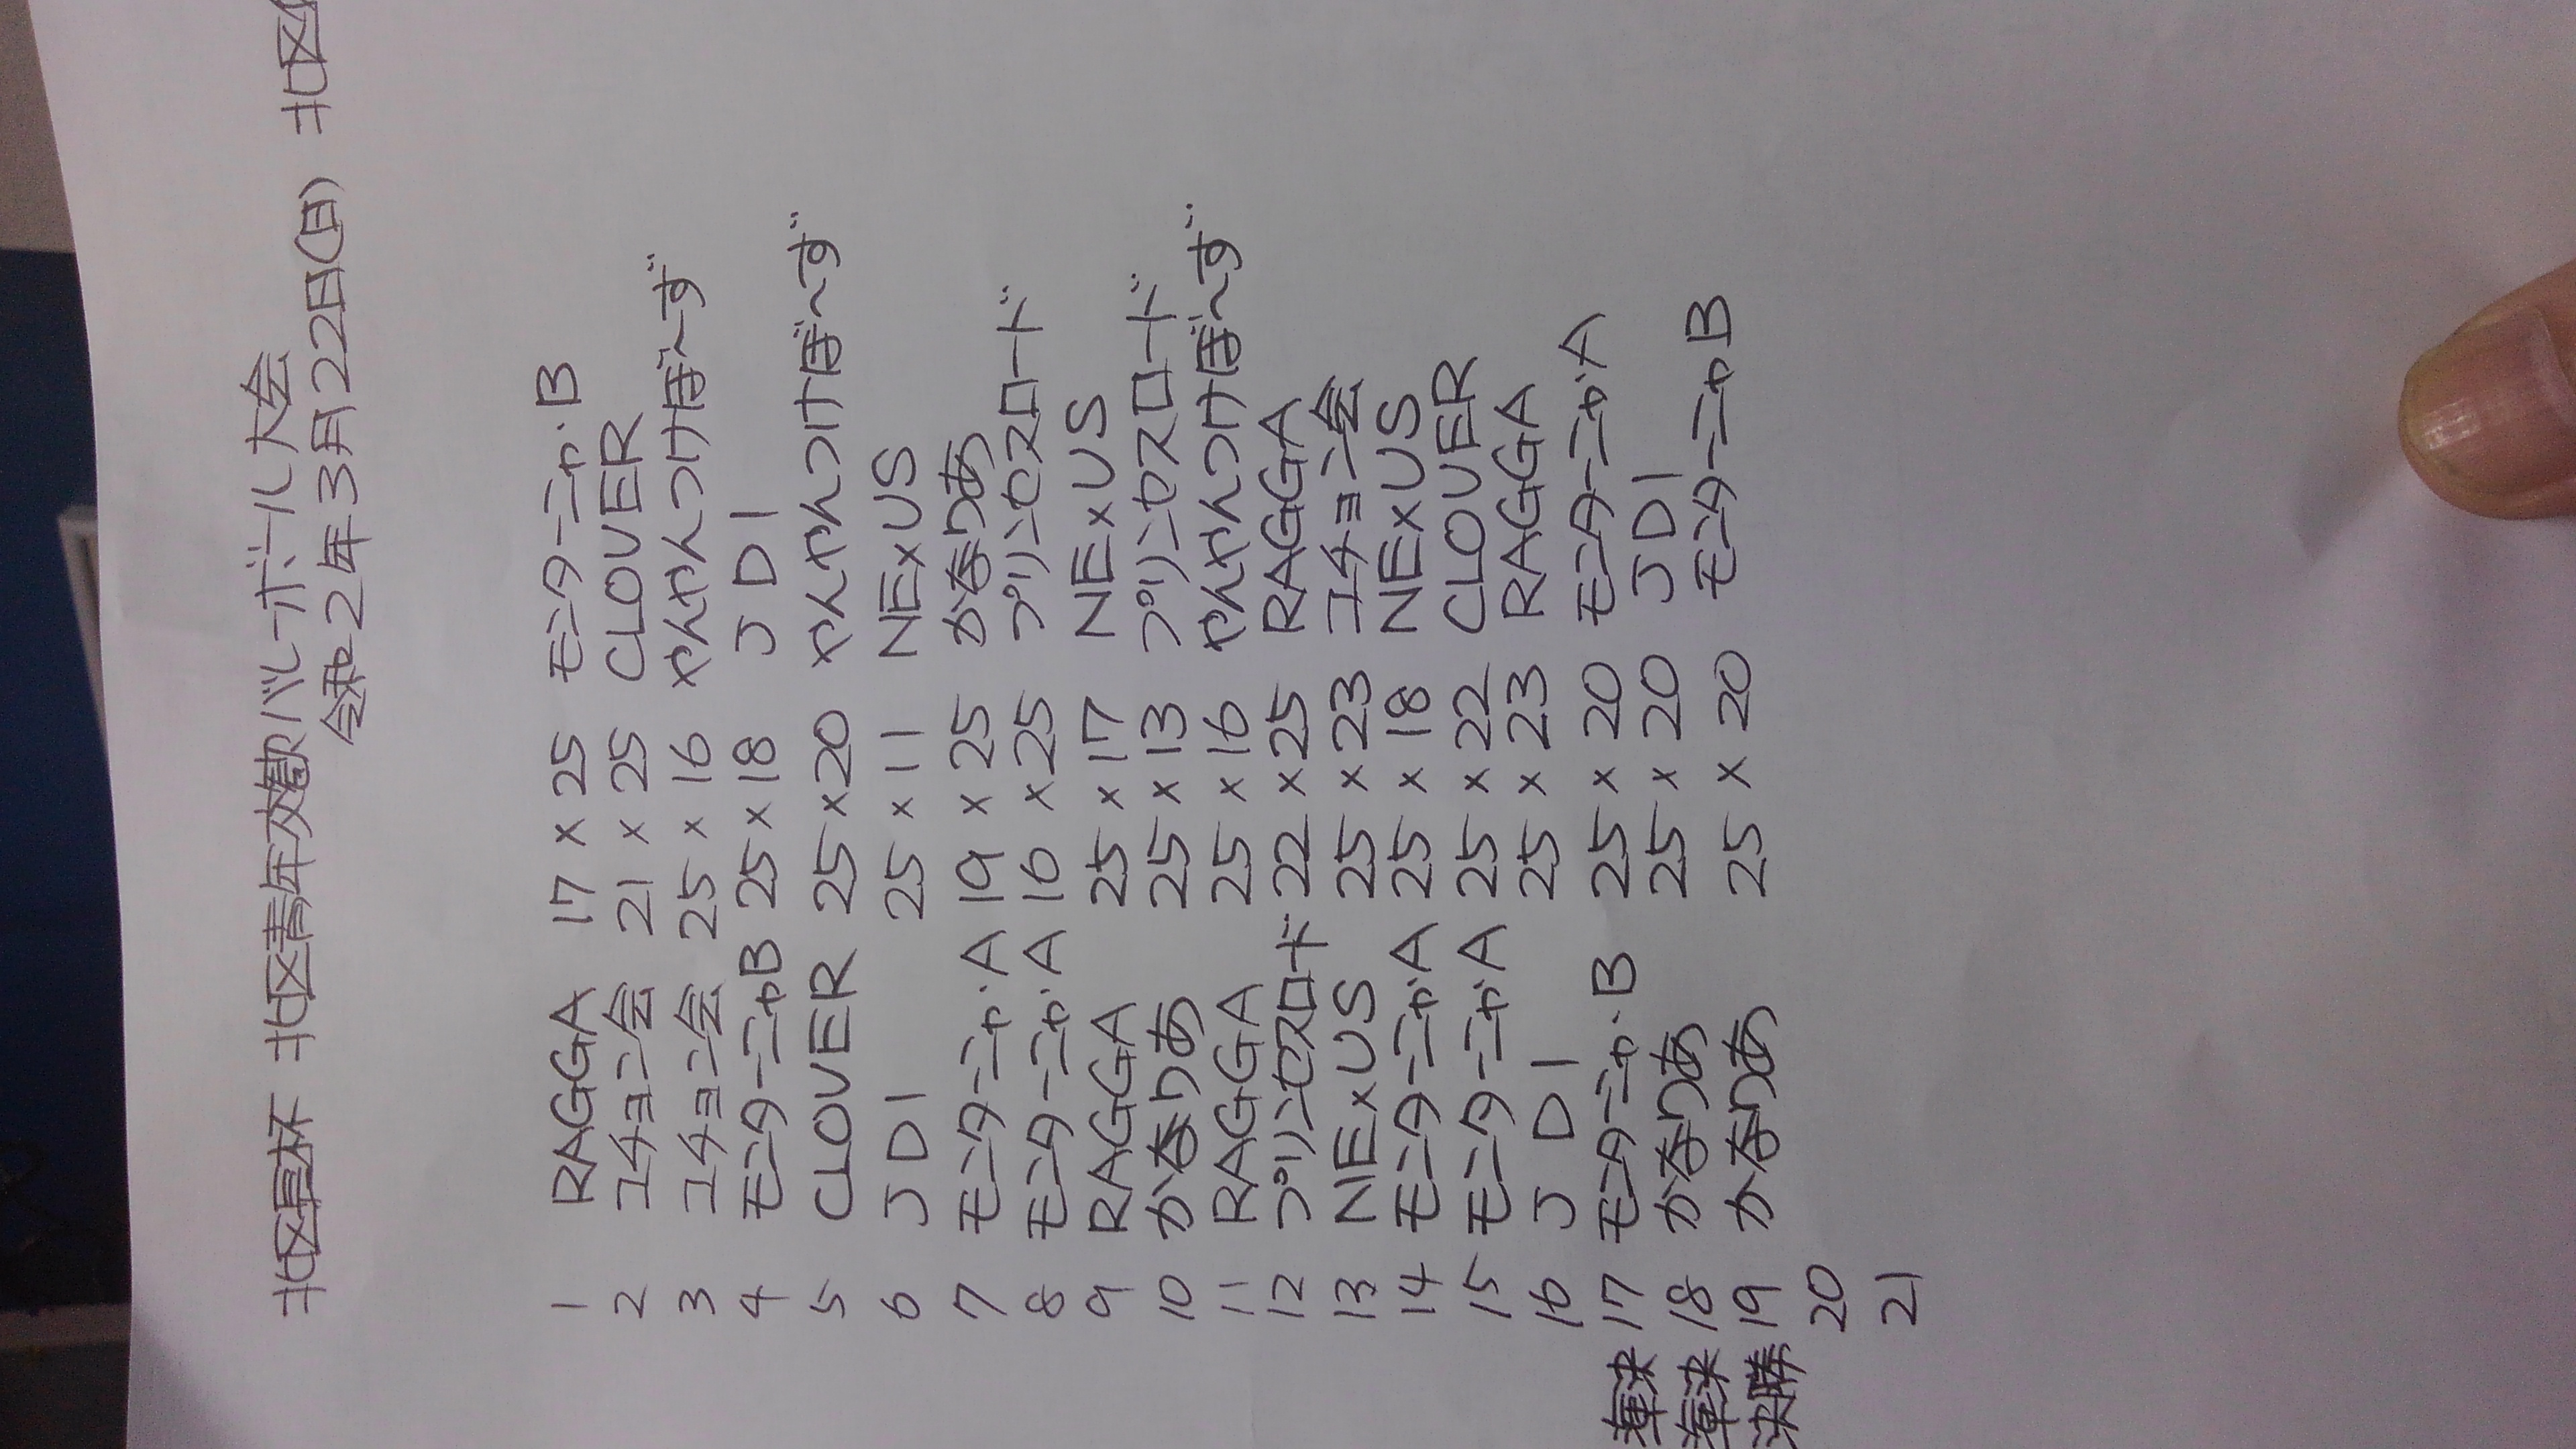 北区卓杯 北区青年交歓バレーボール大会
令和2年3月22日(日) 北区
1 RAGGA 17×25 モンターニャ・B
2 ユチョン会 21×25 CLOVER
3 ユチョン会 25×16 やんやんつけぼ~ず
4 モンターニャB 25×18 JDI
5 CLOVER 25×20 やんやんつけぼ~ず
6 JDI 25×11 NExUS
7 モンターニャ・A 19×25 かなりあ
8 モンターニャ・A 16×25 プリンセスロード
9 RAGGA 25×17 NExUS
10 かなりあ 25×13 プリンセスロード
11 RAGGA 25×16 やんやんつけぼ~ず
12 プリンセスロード 22×25 RAGGA
13 NExUS 25×23 ユチョン会
14 モンターニャA 25×18 NExUS
15 モンターニャA 25×22 CLOVER
16 JDI 25×23 RAGGA
準決 17 モンターニャ・B 25×20 モンターニャA
準決 18 かなりあ 25×20 JDI
決勝 19 かなりあ 25×20 モンターニャB
20
21